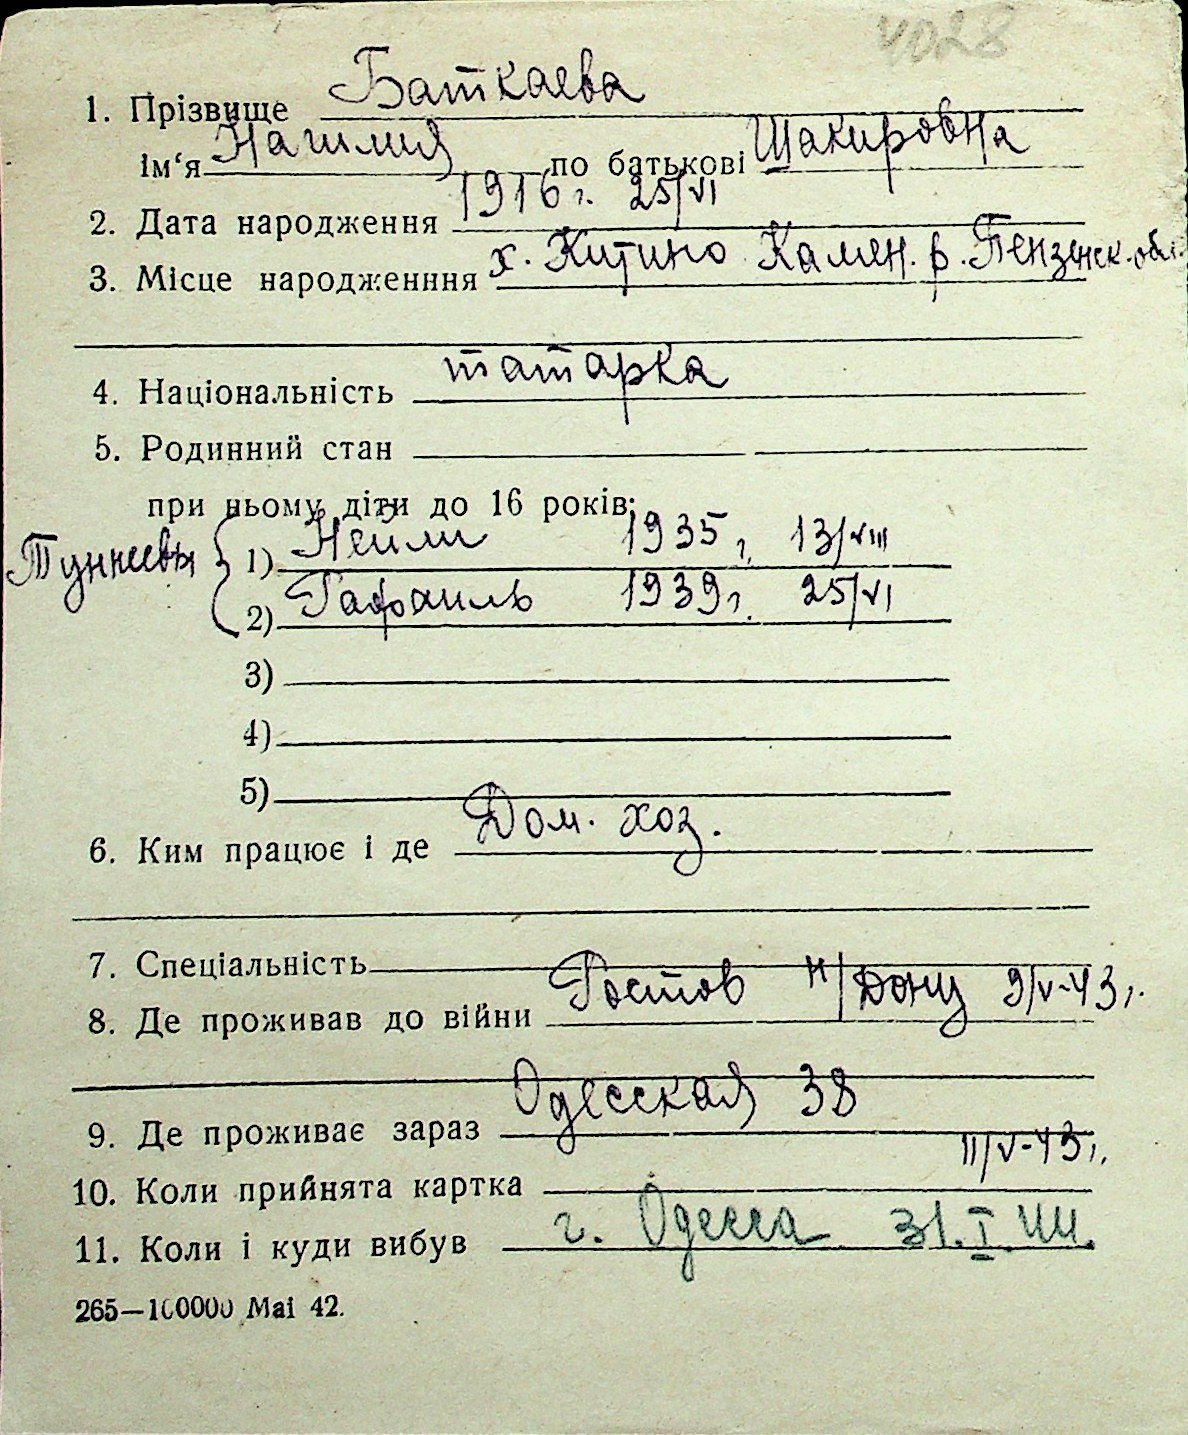 4028
1. Прізвище Баткаева
Ім‘я Нагимия по батькові Шакировна
2. Дата народження 1916 г. 25/VI
3. Місце народженння х. Китино Камен. р. Пензенск. обл.
4. Національність татарка
5. Родинний стан
при ньому діти до 16 років:
1) Неили 1935 г. 13/VIII
2) Рафаиль 1939 г. 25/VI
3)
4)
5)
6. Ким працює і де Дом. хоз.
7. Спеціальність
8. Де проживав до війни Ростов н/Дону 9/V-43 г.
9. Де проживає зараз Одесская 38
10. Коли прийнята картка 11/V-43 г.
11. Коли і куди вибув г. Одесса 31.I.44.
265—100000 Mai 42.